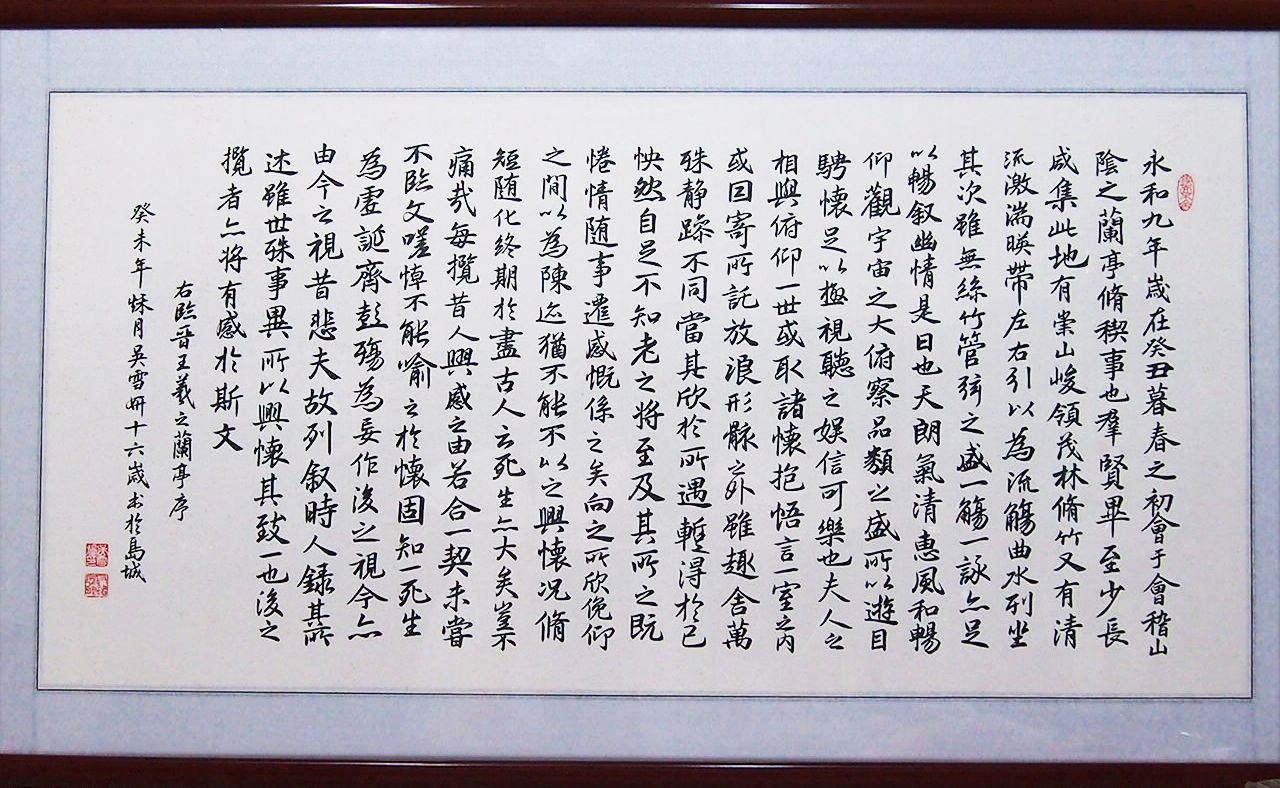 永和九年歲在癸丑暮春之初會于會稽山
陰之蘭亭脩稧事也羣賢畢至少長
咸集此地有崇山峻領茂林脩竹又有清
流激湍暎帶左右引以為流觴曲水列坐
其次雖無絲竹管弦之盛一觴一詠亦足
以暢叙幽情是日也天朗氣清惠風和暢
仰觀宇宙之大俯察品類之盛所以遊目
騁懷足以極視聽之娛信可樂也夫人之
相與俯仰一世或取諸懷抱悟言一室之內
或因寄所託放浪形骸之外雖趣舍萬
殊静躁不同當其欣於所遇暫得於己
怏然自足不知老之將至及其所之既
惓情随事遷感慨係之矣向之所欣俛仰
之間以為陳迹猶不能不以之興懷況脩
短随化終期於盡古人云死生亦大矣豈不
痛哉每攬昔人興感之由若合一契未嘗
不臨文嗟悼不能喻之於懷固知一死生
為虛誕齊彭殤為妄作後之視今亦
由今之視昔悲夫故列叙時人錄其所
述雖世殊事異所以興懷其致一也後之
攬者亦將有感於斯文
右臨晉王羲之蘭亭序
癸未年秋月吳雪妍十六歲書於馬城